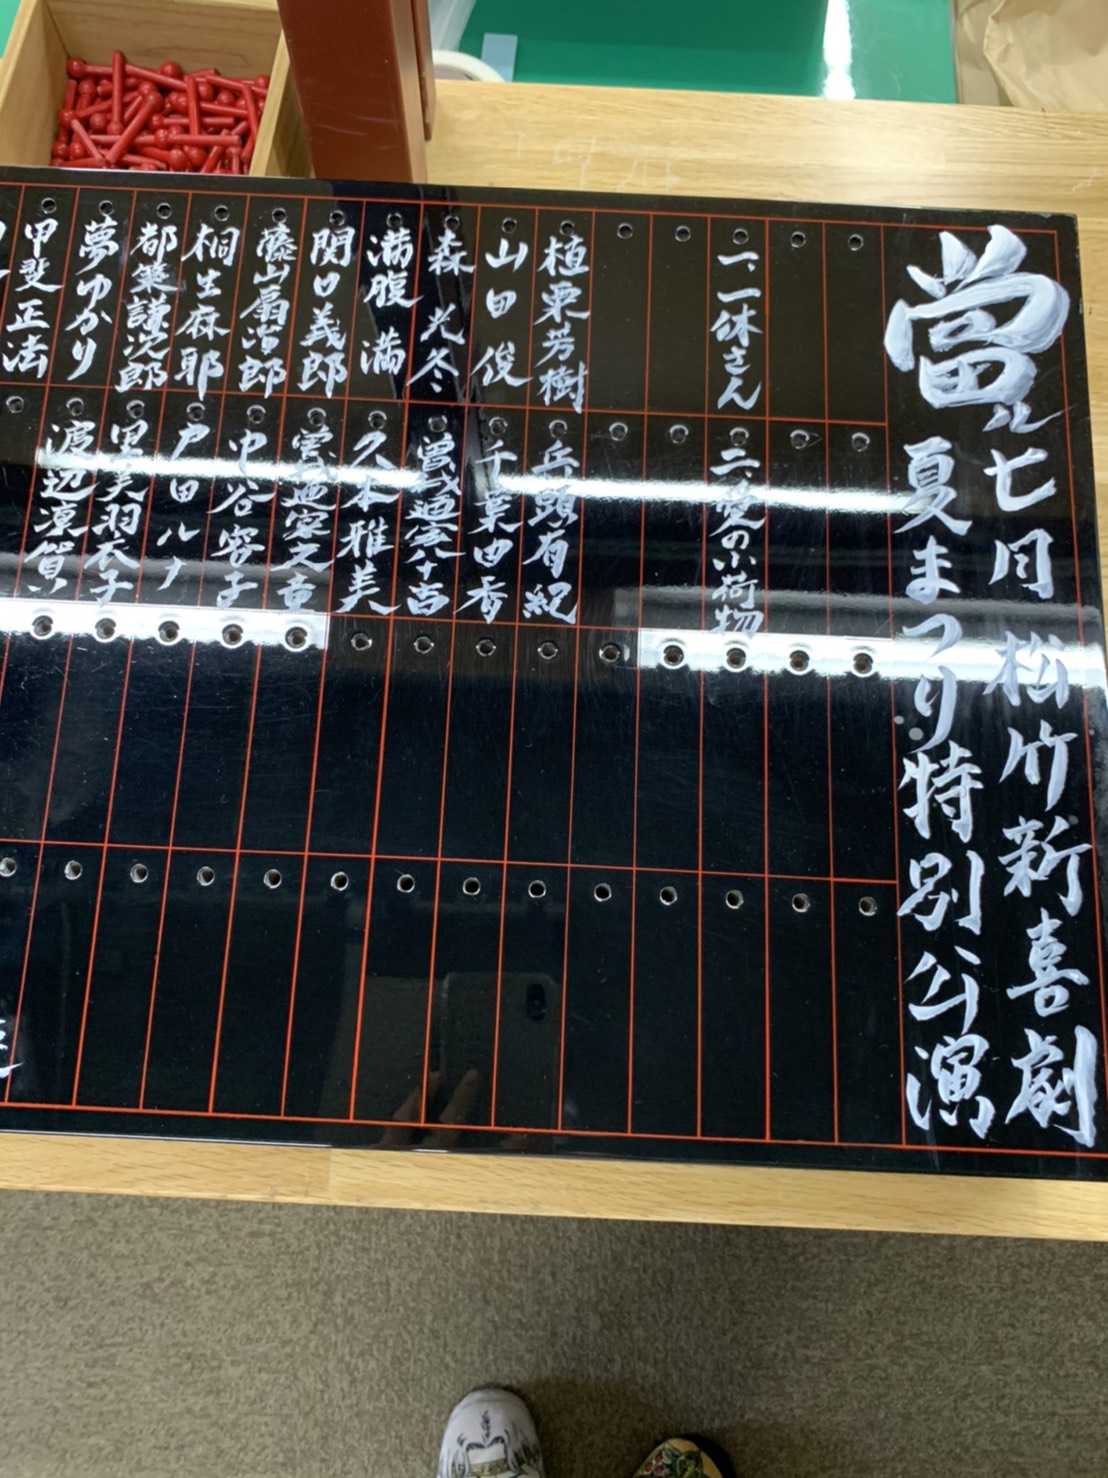 當ル七月 松竹新喜劇
夏まつり特別公演
一、一休さん
二、愛の小荷物
植栗芳樹
山田 俊
森 光冬
満腹 満
関口義郎
藤山扇治郎
桐生麻耶
都築謙次郎
夢ゆかり
甲斐正法
兵頭有紀
千葉由香
曽我廼家八十吉
久本雅美
曽我廼家文童
中谷容子
戸田ルナ
里美羽衣子
渡辺涼賀